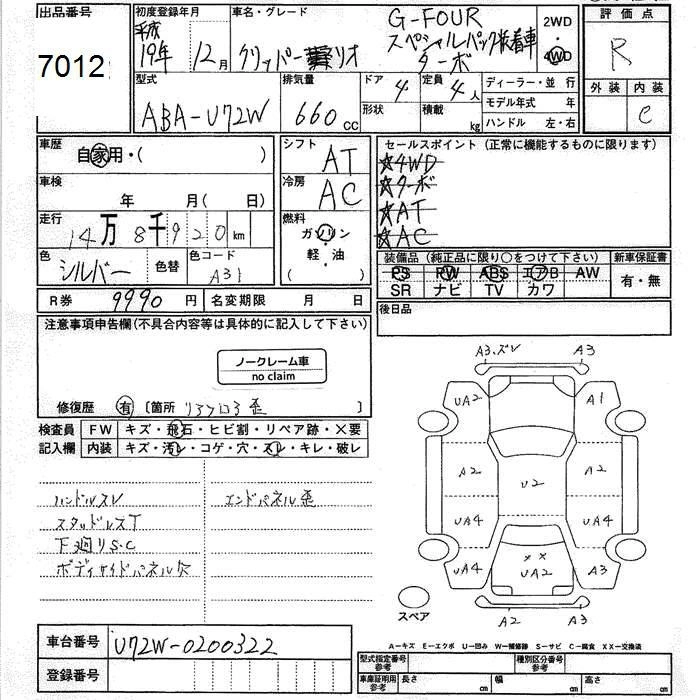 出品番号 初度登録年月 車名・グレード 評価点
7012 平成 19年 12月 クリッパーリオ G-FOUR 2WD R
スペシャルパック装着車 4WD
ターボ
型式 排気量 ドア 4 定員 4人 ディーラー・並行 外装 内装
ABA-U72W 660cc 形状 積載 kg モデル年式 年 C
ハンドル 左・右
車歴 自家用・( ) シフト AT セールスポイント (正常に機能するものに限ります)
☆4WD
車検 年 月( 日) 冷房 AC ☆ターボ
☆AT
走行 14万8千920km 燃料 ガソリン ☆AC
軽・油
( )
色 シルバー 色替 色コード A31 装備品 (純正品に限り○をつけて下さい) 新車保証書
PS PW ABS エアB AW 有・無
R券 9990円 名変期限 月 日 SR ナビ TV カワ
注意事項申告欄(不具合内容等は具体的に記入して下さい) 後日品
ノークレーム車
no claim
修復歴 有 〔箇所 リアフロア歪 〕
検査員 FW キズ・飛石・ヒビ割・リペア跡・×要
記入欄 内装 キズ・汚レ・コゲ・穴・スレ・キレ・破レ
ハンドルスレ エンドパネル歪
スタッドレスT
下廻りS.C
ボディサイドパネル穴
A3.ズレ A3
UA2 A1
A2 U2 A2
UA4 UA4
UA4 ×× UA2 A3
スペア A2 A3
車台番号 U72W-0200322
登録番号
A－キズ E－エクボ U－凹み W－補修跡 S－サビ C－腐食 XX－交換済
型式指定番号 参考 種別区分番号 参考
車庫証明用 参考 長さ cm 幅 cm 高さ cm